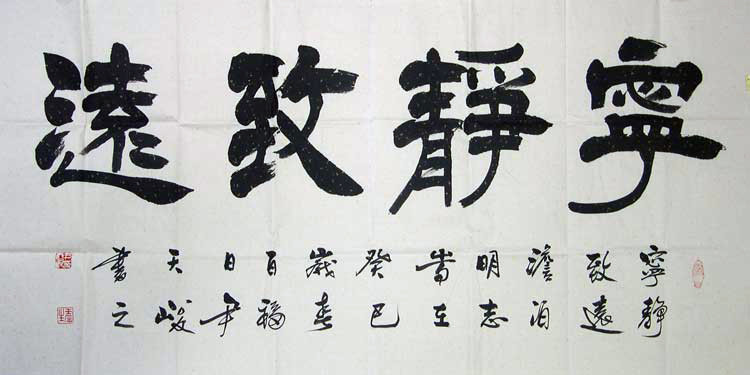 寧靜致遠
寧靜
致遠
澹泊
明志
在
癸巳
歲春
百福
日尹
天峻
書之